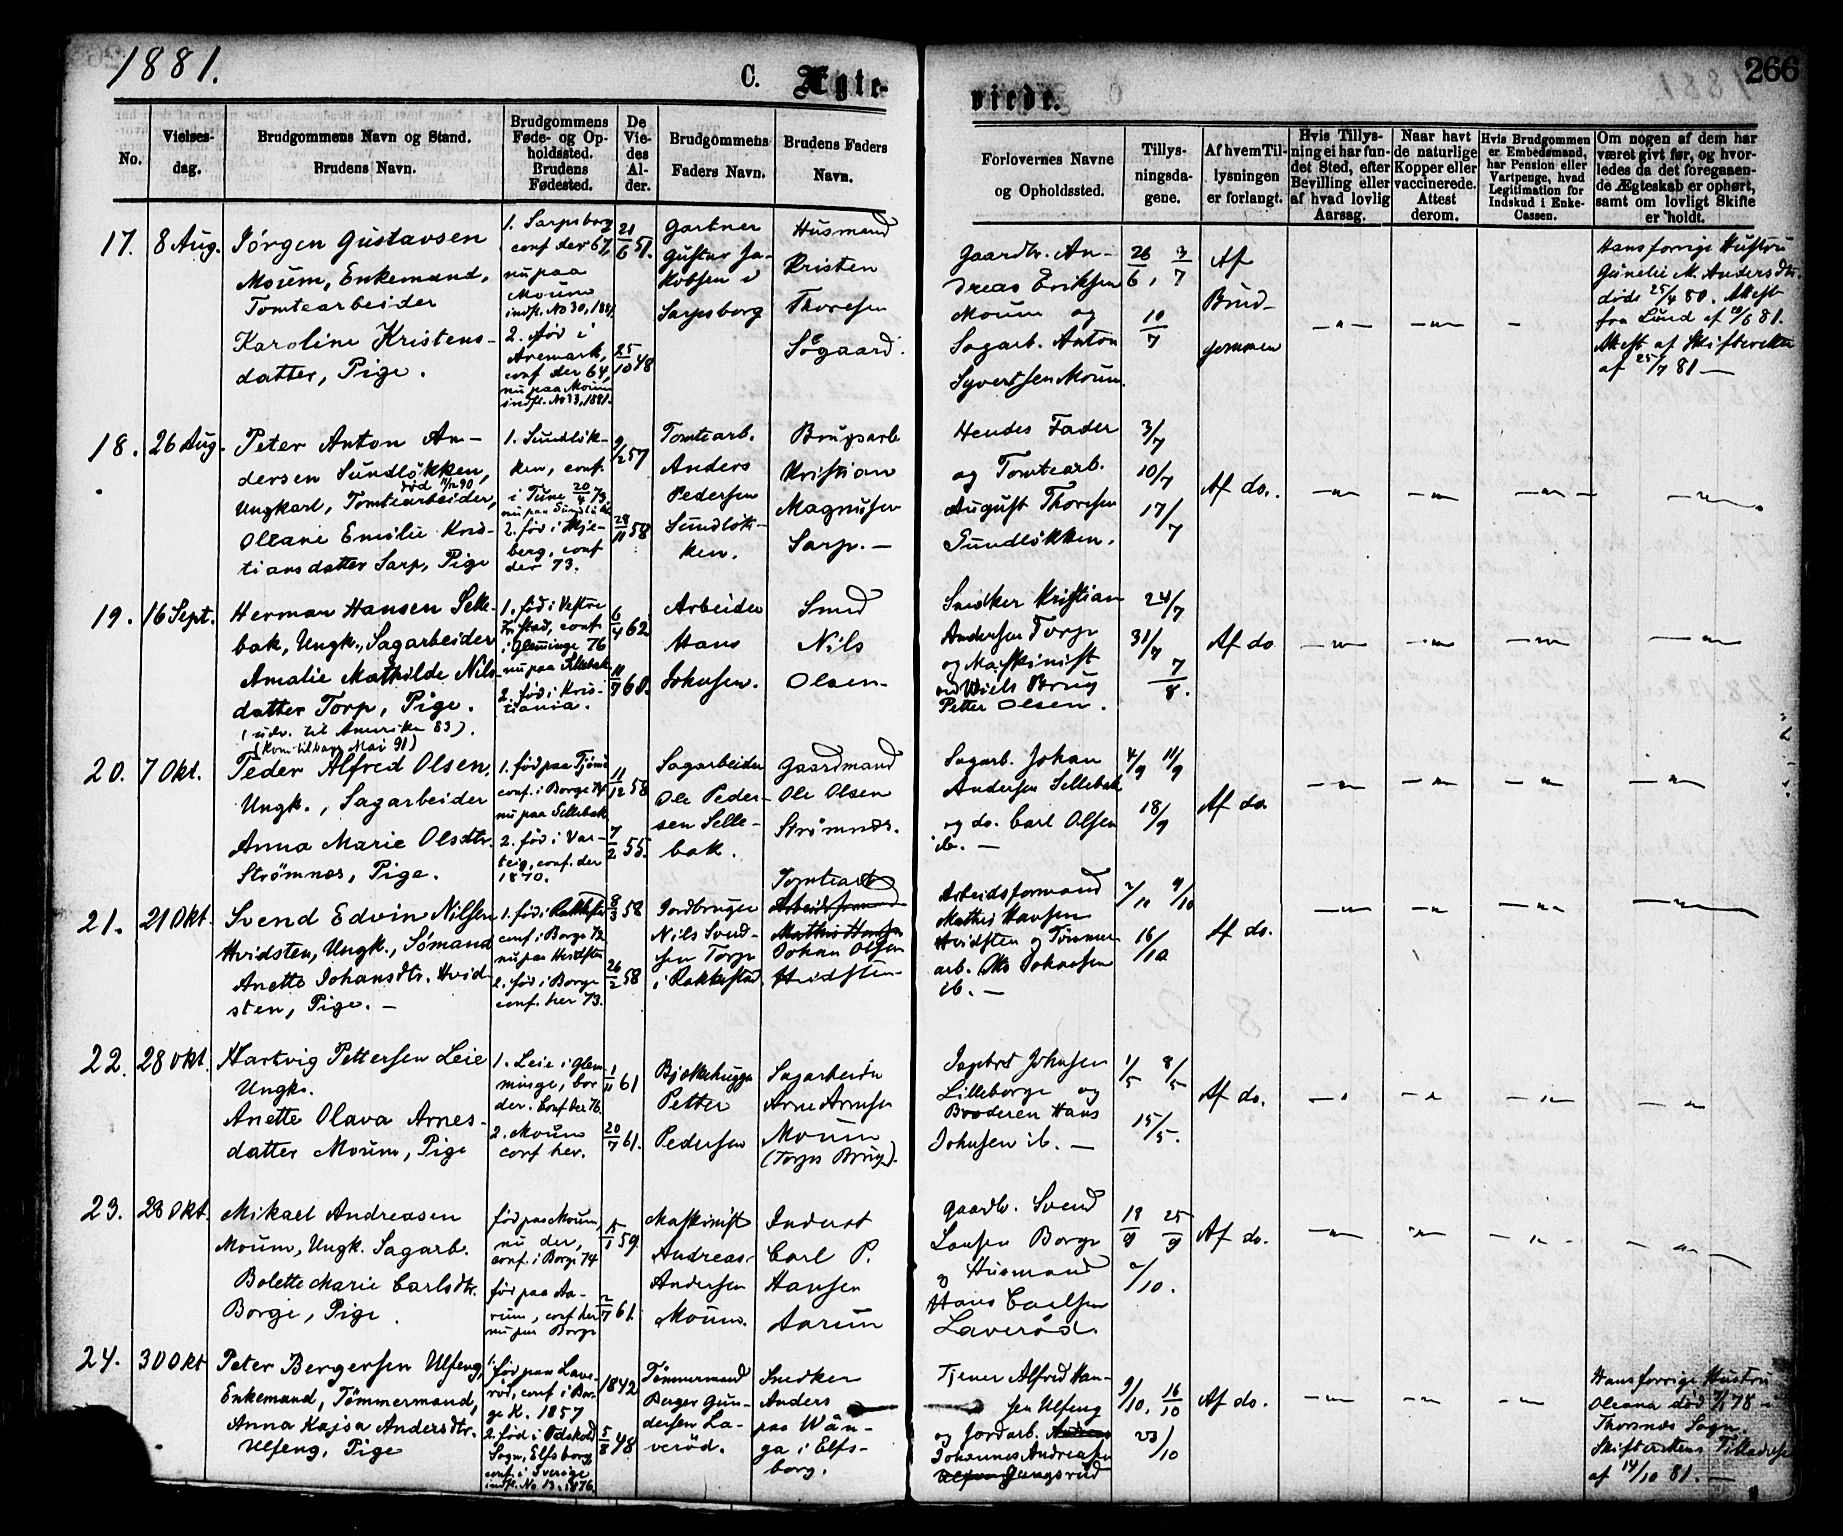 1881.
C. Ægte-
viede.
266
No.
Vielses-
dag.
Brudgommens Navn og Stand.
Brudens Navn.
Brudgommens
Føde- og Op-
holdssted.
Brudens
Fødested.
De
Vie-
des
Al-
der.
Brudgommens
Faders Navn.
Brudens Faders
Navn.
Forlovernes Navne
og Opholdssted.
Tillys-
ningsda-
gene.
Af hvem Til-
lysningen
er forlangt.
Hvis Tillys-
ning ei har fun-
det Sted, efter
Bevilling eller
af hvad lovlig
Aarsag.
Naar havt
de naturlige
Kopper eller
vaccinerede.
Attest
derom.
Hvis Brudgommen
er Embedsmand,
har Pension eller
Vartpenge, hvad
Legitimation for
Indskud i Enke-
Cassen.
Om nogen af dem har
været givt før, og hvor-
ledes da det foregaaen-
de Ægteskab er ophørt,
samt om lovligt Skifte
er holdt.
17. 8 Aug.
Jørgen Gustavsen
Moum, Enkemand,
Tomtearbeider
Karoline Kristens-
datter, Pige.
1. Sarpsborg
conf der 67,
nu paa
Moum
indfl. No 30, 1881
2. fød i
Aremark,
conf der 64,
nu paa Moum
indfl. No 33, 1881.
21/6 51.
25/10 48
Gartner
Gustav Ja-
kobsen i
Sarpsborg
Husmand
Kristen
Thoresen
Søgaard.
Gaardbr. An-
dreas Eriksen
Moum og
Sagarb. Anton
Syvertsen Moum.
26/6, 3/7
10/7
Af
Brud-
gommen
Hans forrige Hustru
Gunelie M. Andersdtr.
døde 25/4 80. Attest
fra Lund af
Attest af Skifteretten
af 25/7 81 —
18. 26 Aug.
Peter Anton An-
dersen Sundløkken,
død 11/12 90
Ungkarl, Tomtearbeider,
Oleane Emilie Kris-
tiansdatter Sarp, Pige
1. Sundløk-
ken, conf.
i Tune 20/4 73,
nu paa Sundløkk
2. fød i Skje-
berg, conf
der 73.
9/2 57
28/11 58
Tomtearb.
Anders
Pedersen
Sundløk-
ken.
Brugsarb
Kristian
Magnusen
Sarp. —
Hendes Fader
og Tomtearb.
August Thoresen
Sundløkken.
3/7
10/7
17/7
Af do.
19. 16 Sept.
Herman Hansen Selle-
bak, Ungk., Sagarbeider
Amalie Mathilde Nils-
datter Torp, Pige.
(udv. til Amerika 83).
(Kom tilbage Mai 91)
1. fød i Vestre
Fr.stad, conf
i Glemminge 76
nu paa Sellebak
2. fød i Kris-
tiania.
6/4 62
11/9 60.
Arbeider
Hans
Johnsen.
Smed
Nils
Olsen
Snedker Kristian
Andersen Torp
og Maskinist
ved Brug
Petter Olsen.
24/7
31/7
7/8.
Af do
20. 7 Okt.
Peder Alfred Olsen,
Ungk., Sagarbeider
Anna Marie Olsdtr.
Strømnes, Pige.
1. fød paa Tjømø
conf. i Borge 74
nu paa Sellebak
2. fød i Var-
teig, conf. der
1870.
11/12 58
7/2 55.
Sagarbeider
Ole Peder-
sen Selle-
bak.
Gaardmand
Ole Olsen
Strømnes.
Sagarb. Johan
Andersen Sellebak
og do. Carl Olsen
ib. —
4/9 11/9
18/9
Af do.
21. 21 Okt.
Svend Edvin Nilsen
Hvidsten, Ungk., Sømand
Anette Johansdtr. Hvid-
sten, Pige. —
1. fød i Rakkestad
conf. i Borge 72
nu paa Hvidsten
2. fød i Borge
conf. her 73.
8/3 58
26/2 58
Jordbruger
Nils Svend-
sen Torp
i Rakkestad.
Tomtearb
Arbeidsformand
Mathis Hansen
Johan Olsen
Hvidsten
Arbeidsformand
Mathis Hansen
Hvidsten og Tømmer-
arb. Johansen
ib. —
2/10 9/10
16/10
Af do.
22. 28 Okt.
Hartvig Pettersen Leie
Ungk.
Anette Olava Arnes-
datter Moum, Pige
1. Leie i Glem-
minge, bor
der. Conf her 76.
2. Moum
conf her.
1/11 61
20/7 61.
Bjelkehugger
Petter
Pedersen
Sagarbeider
Arne Arnesen
Moum
(Torps Brug).
Ingebret Johnsen
Lilleborge og
Broderen Hans
Johnsen ib. —
1/5 8/5
15/5.
Af do.
23. 28 Okt.
Mikael Andreasen
Moum, Ungk. Sagarb.
Bolette Marie Carlsdtr.
Borge, Pige.
fød paa Moum,
nu der,
conf. i Borge 74
fød paa Aa-
rum, conf her
nu paa Borge
15/1 59
2/7 61.
Maskinist
Andreas
Andersen
Moum.
Inderst
Carl P.
Hansen
Aarum
Gaardb. Svend
Larsen Borge
og Husmand
Hans Carlsen
Laverød.
18/9 25/9
2/10.
Af do.
24. 30 Okt
Peter Bergersen Ulfeng,
Enkemand, Tømmermand,
Anna Kajsa Andersdtr.
Ulfeng, Pige
1. fød paa Lave-
rød, conf i Bor-
ge K. 1857
2. fød i Ödskölds
Sogn, Elfsborg
conf. i Sverige
indfl. No 13, 1876.
1842
5/8 48
Tømmermand
Berger Gun-
dersen La-
verød.
Snedker
Anders
paa Wån-
ga i Elfs-
borg.
Tjener Alfred Han-
sen Ulfeng
og Jordarb. Andreas
Johannes Andreasen
Ulfeng Gangsrud
9/10, 16/10
23/10
Af do.
Hans forrige Hustru
Oleana død 78 i
Thorsnes Sogn.
Skifterettens Tilladelse
af 14/10 81. —